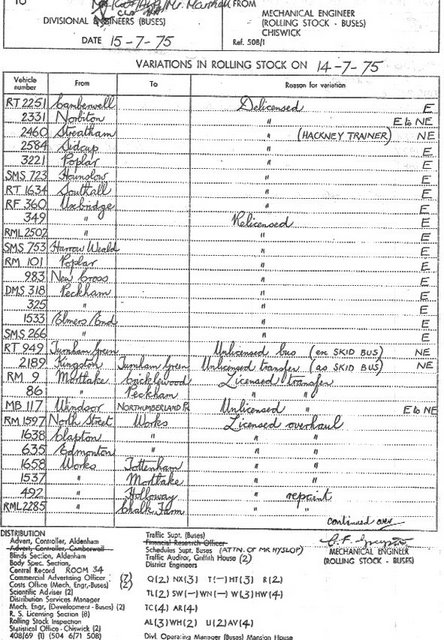 To
Mr. Marshall
FROM
DIVISIONAL ENGINEERS (BUSES)
MECHANICAL ENGINEER
(ROLLING STOCK - BUSES)
CHISWICK
DATE 15-7-75
Ref. 508/1
VARIATIONS IN ROLLING STOCK ON 14-7-75
Vehicle number From To Reason for variation
RT 2251 Camberwell Delicensed E
2331 Norbiton " E to NE
2460 Streatham " (HACKNEY TRAINER) NE
2584 Sidcup " E
3221 Poplar " E
SMS 723 Hounslow " E
RT 1634 Southall " E
RF 360 Uxbridge " E
349 " Relicensed E
RML 2502 " " E
SMS 753 Harrow Weald " E
RM 101 Poplar " E
983 New Cross " E
DMS 318 Peckham " E
325 " " E
1533 Elmers End " E
SMS 266 " " E
RT 949 Turnham Green Unlicensed bus (ex SKID BUS) NE
2189 Kingston Turnham Green Unlicensed transfer (as SKID BUS) NE
RM 9 Mortlake Cricklewood Licensed transfer
86 " Peckham " "
MB 117 Windsor NORTHUMBERLAND P. Unlicensed " E to NE
RM 1597 North Street Works Licensed overhaul
1638 Clapton " " "
635 Edmonton " " "
1658 Works Tottenham " "
1537 " Mortlake " "
492 " Holloway " reprint
RML 2285 " Chalk Farm " "
continued over
DISTRIBUTION
Advert, Controller, Aldenham
Advert, Controller, Camberwell
Blinds Section, Aldenham
Body Spec. Section,
Central Record ROOM 34
Commercial Advertising Officer (2)
Costs Office (Mech. Engr.-Buses) (2)
Scientific Adviser (2)
Distribution Services Manager
Mech. Engr, (Development - Buses) (2)
R. S. Licensing Section (8)
Rolling Stock Inspection
Statistical Office - Chiswick (2)
408/69 (I) (504 6/71 508)
Traffic Supt. (Buses)
Financial Research Officer
Schedules Supt. Buses (ATTN. OF MR HYSLOP)
Traffic Auditor, Griffith House (2)
District Engineers
Q(2) NX(3) T(-) HT(3) R(2)
TL(2) SW(-) WN(-) W(3) HW(4)
TC(4) AR(4)
AL(3) WH(2) U(2) AV(4)
Divl. Operating Manager (Buses) Mansion House
MECHANICAL ENGINEER
(ROLLING STOCK - BUSES)